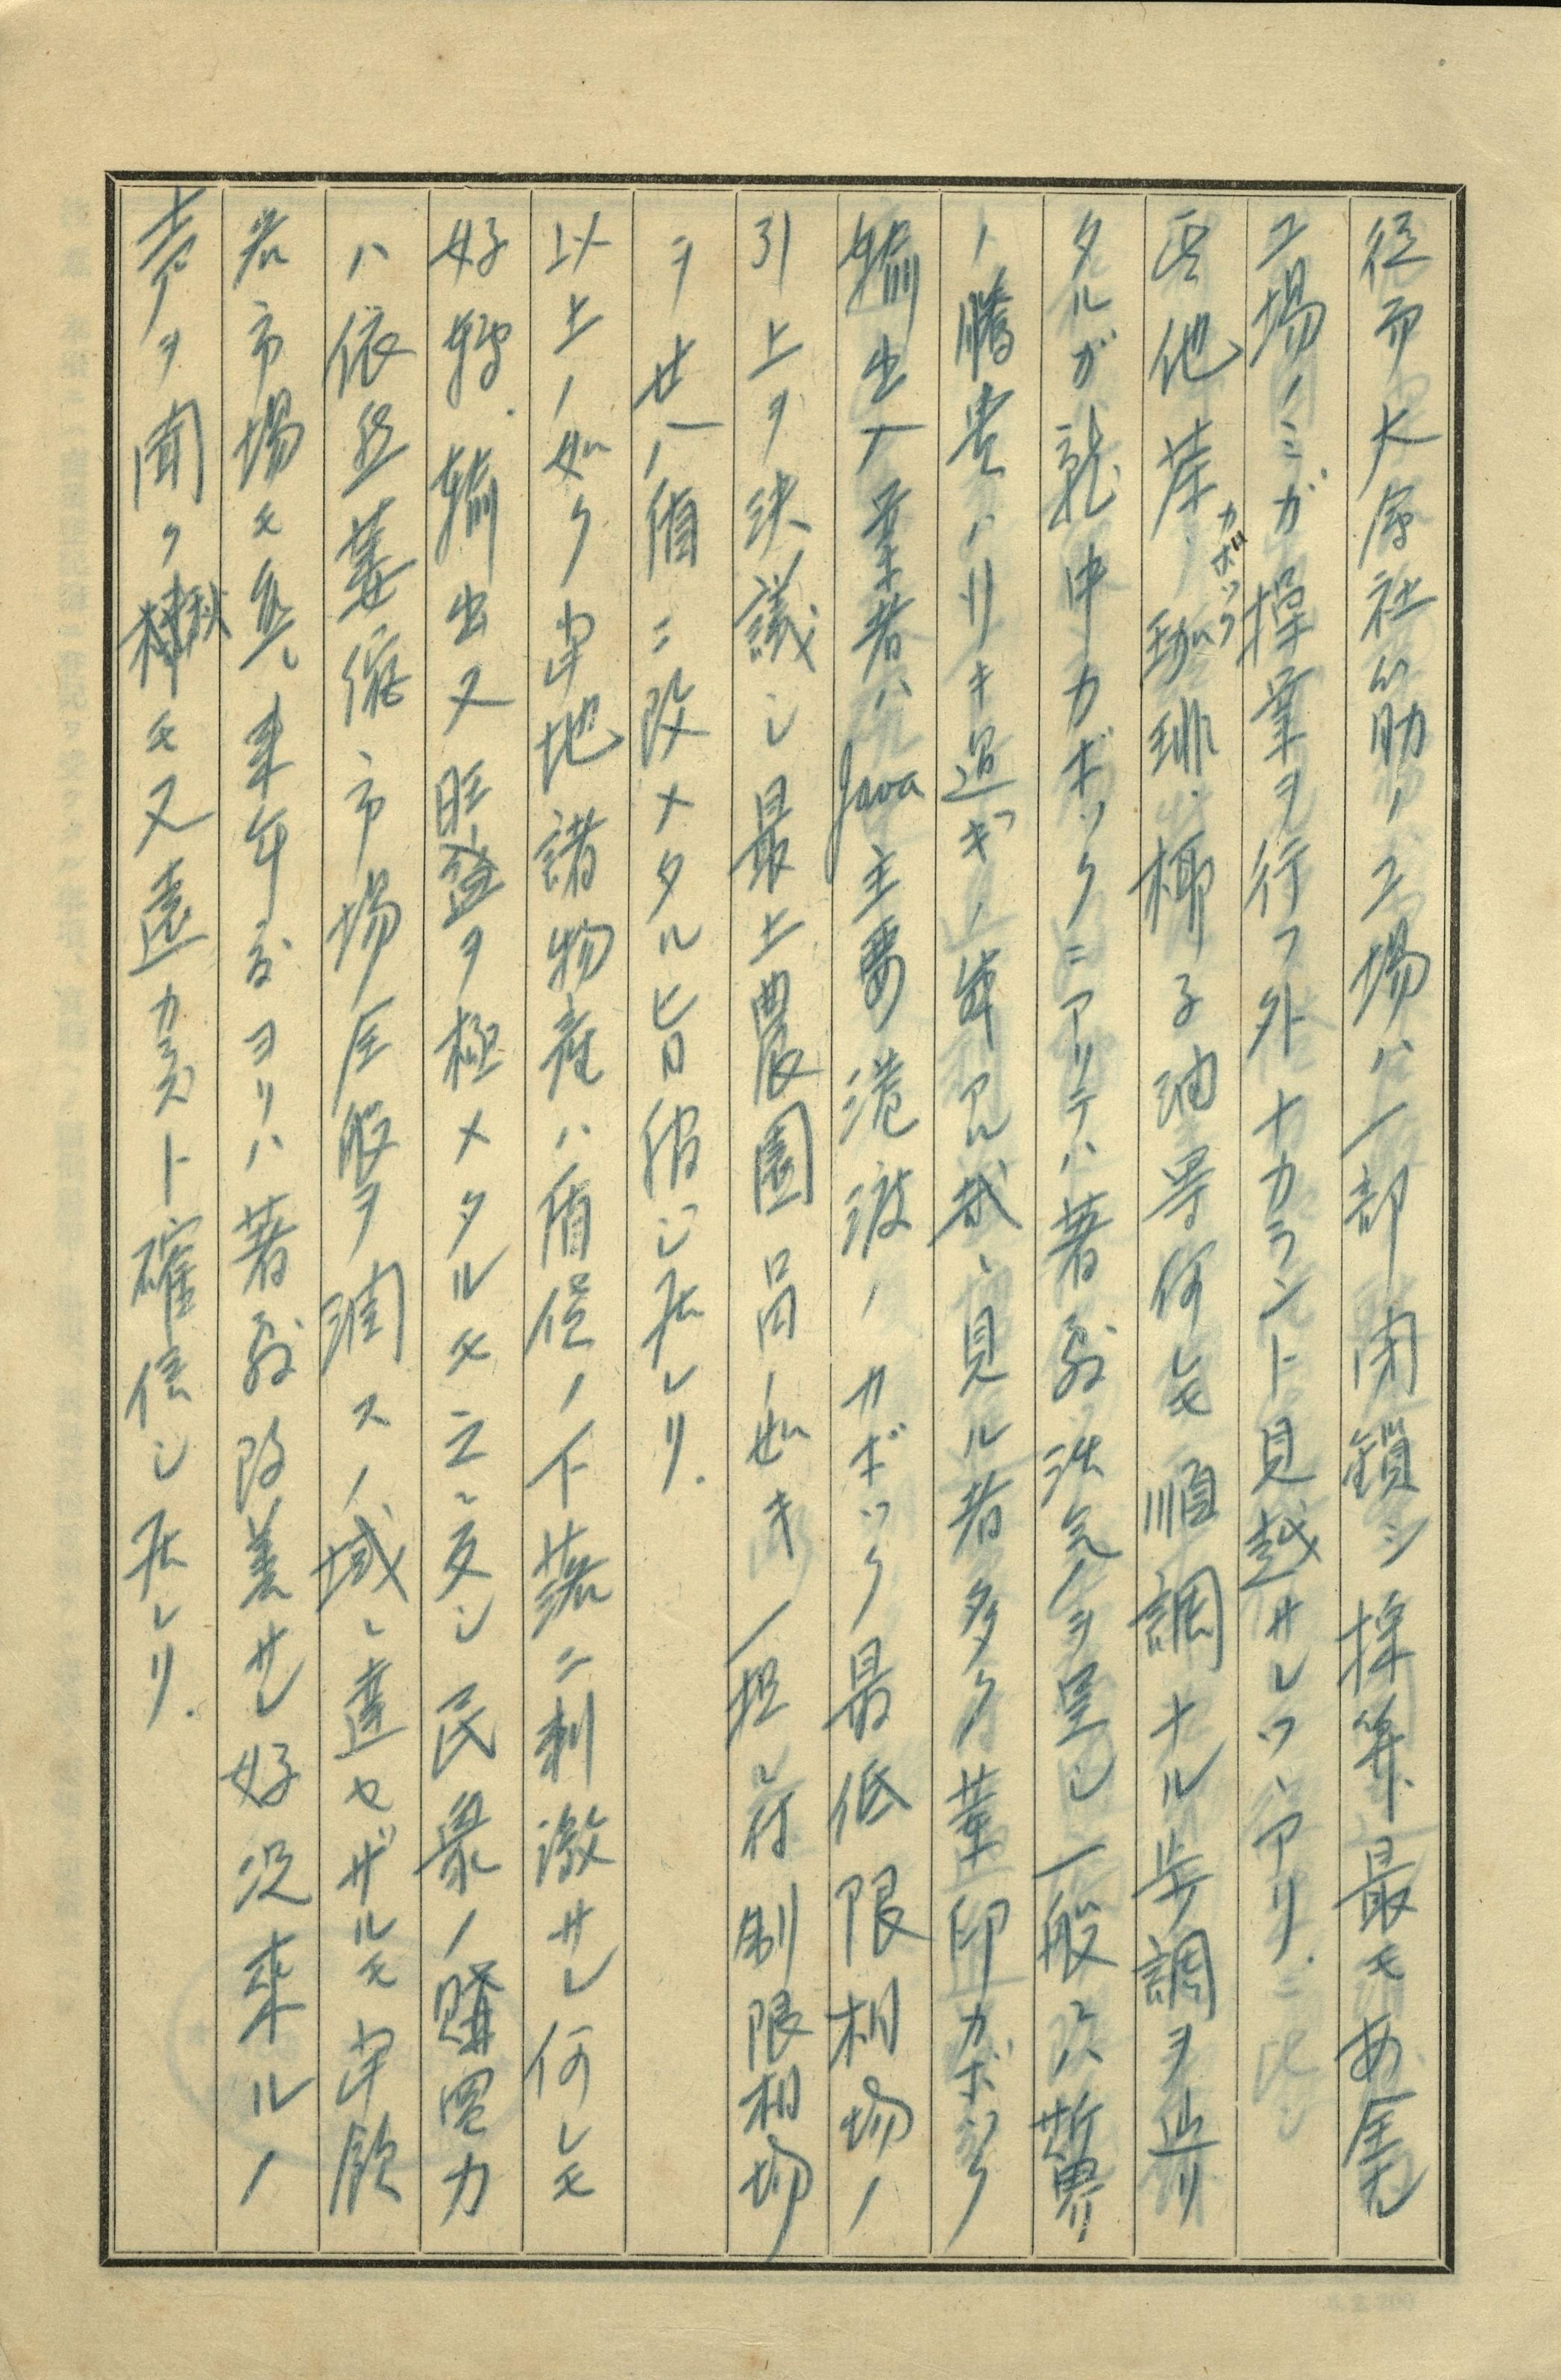 従而大倉社筋ノ工場ハ一部閉鎖シ採算最モ安全ナル
工場ノミガ操業ヲ行フ外ナカラント見越サレツヽアリ.
其他茶、珈琲、椰子油等何レモ順調ナル歩調ヲ辿リ
カボック
タルガ就中カボックニアリテハ著敷活気ヲ呈シ一般
ノ騰貴ハリキ過ギノ
見ル者多ク
輸出業者ハJava主要港渡ノカボック最低限相場ノ
引上ヲ決議シ最上農園品ノ如キ一担ニ付制限相場
ヲ廿一盾ニ改メタル旨報ジ居レリ.
以上ノ如ク当地諸物産ハ盾価ノ下落ニ刺激サレ何レモ
好転.輸出又旺盛ヲ極メタルモ之ニ反シ民衆ノ購買力
ハ依然萎縮市場全般ヲ潤スノ域ニ達セザルモ
市場モ
来年
ヨリハ著敷改善サレ好況来ルノ
声ヲ聞ク
モ又遠カラズト確信シ居レリ.